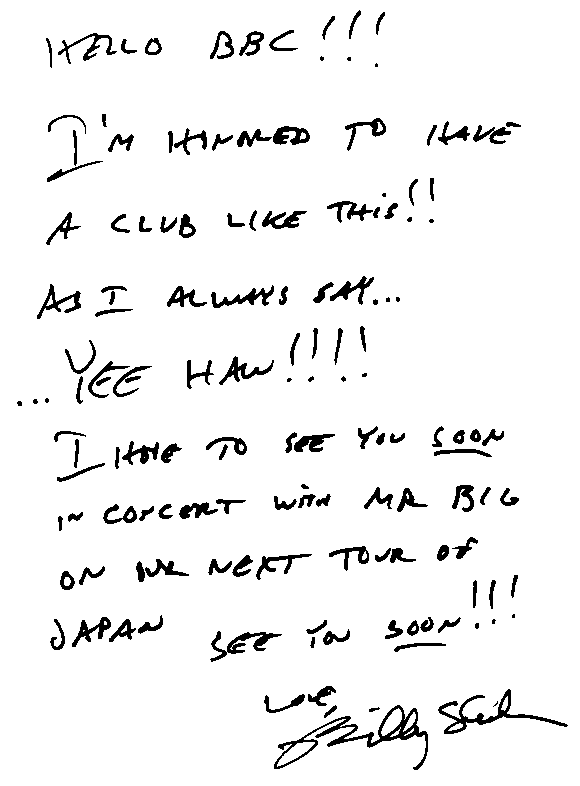 HELLO BBC!!!
I'M HONORED TO HAVE
A CLUB LIKE THIS!!
AS I ALWAYS SAY...
...YEE HAW!!!!
I HOPE TO SEE YOU SOON
IN CONCERT WITH MR BIG
ON OUR NEXT TOUR OF
JAPAN SEE YOU SOON!!!
LOVE,
Billy Sheehan